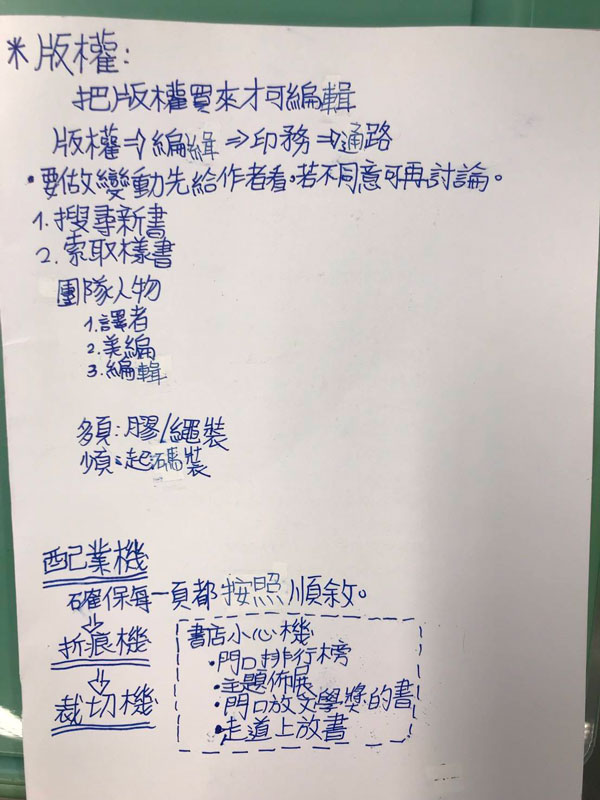 *版權:
把版權買來才可編輯
版權⇒編緝⇒印務⇒通路
•要做變動先給作者看。若不同意可再討論。
1.搜尋新書
2.索取樣書
團隊人物
1.譯者
2.美編
3.編輯
多頁:膠/繩裝
少頁:起碼裝
配業機
確保每一頁都按照順敘。
⇓
折痕機
⇓
裁切機
書店小心機
•門口排行榜
•主題佈展
•門口放文學獎的書
•走道上放書